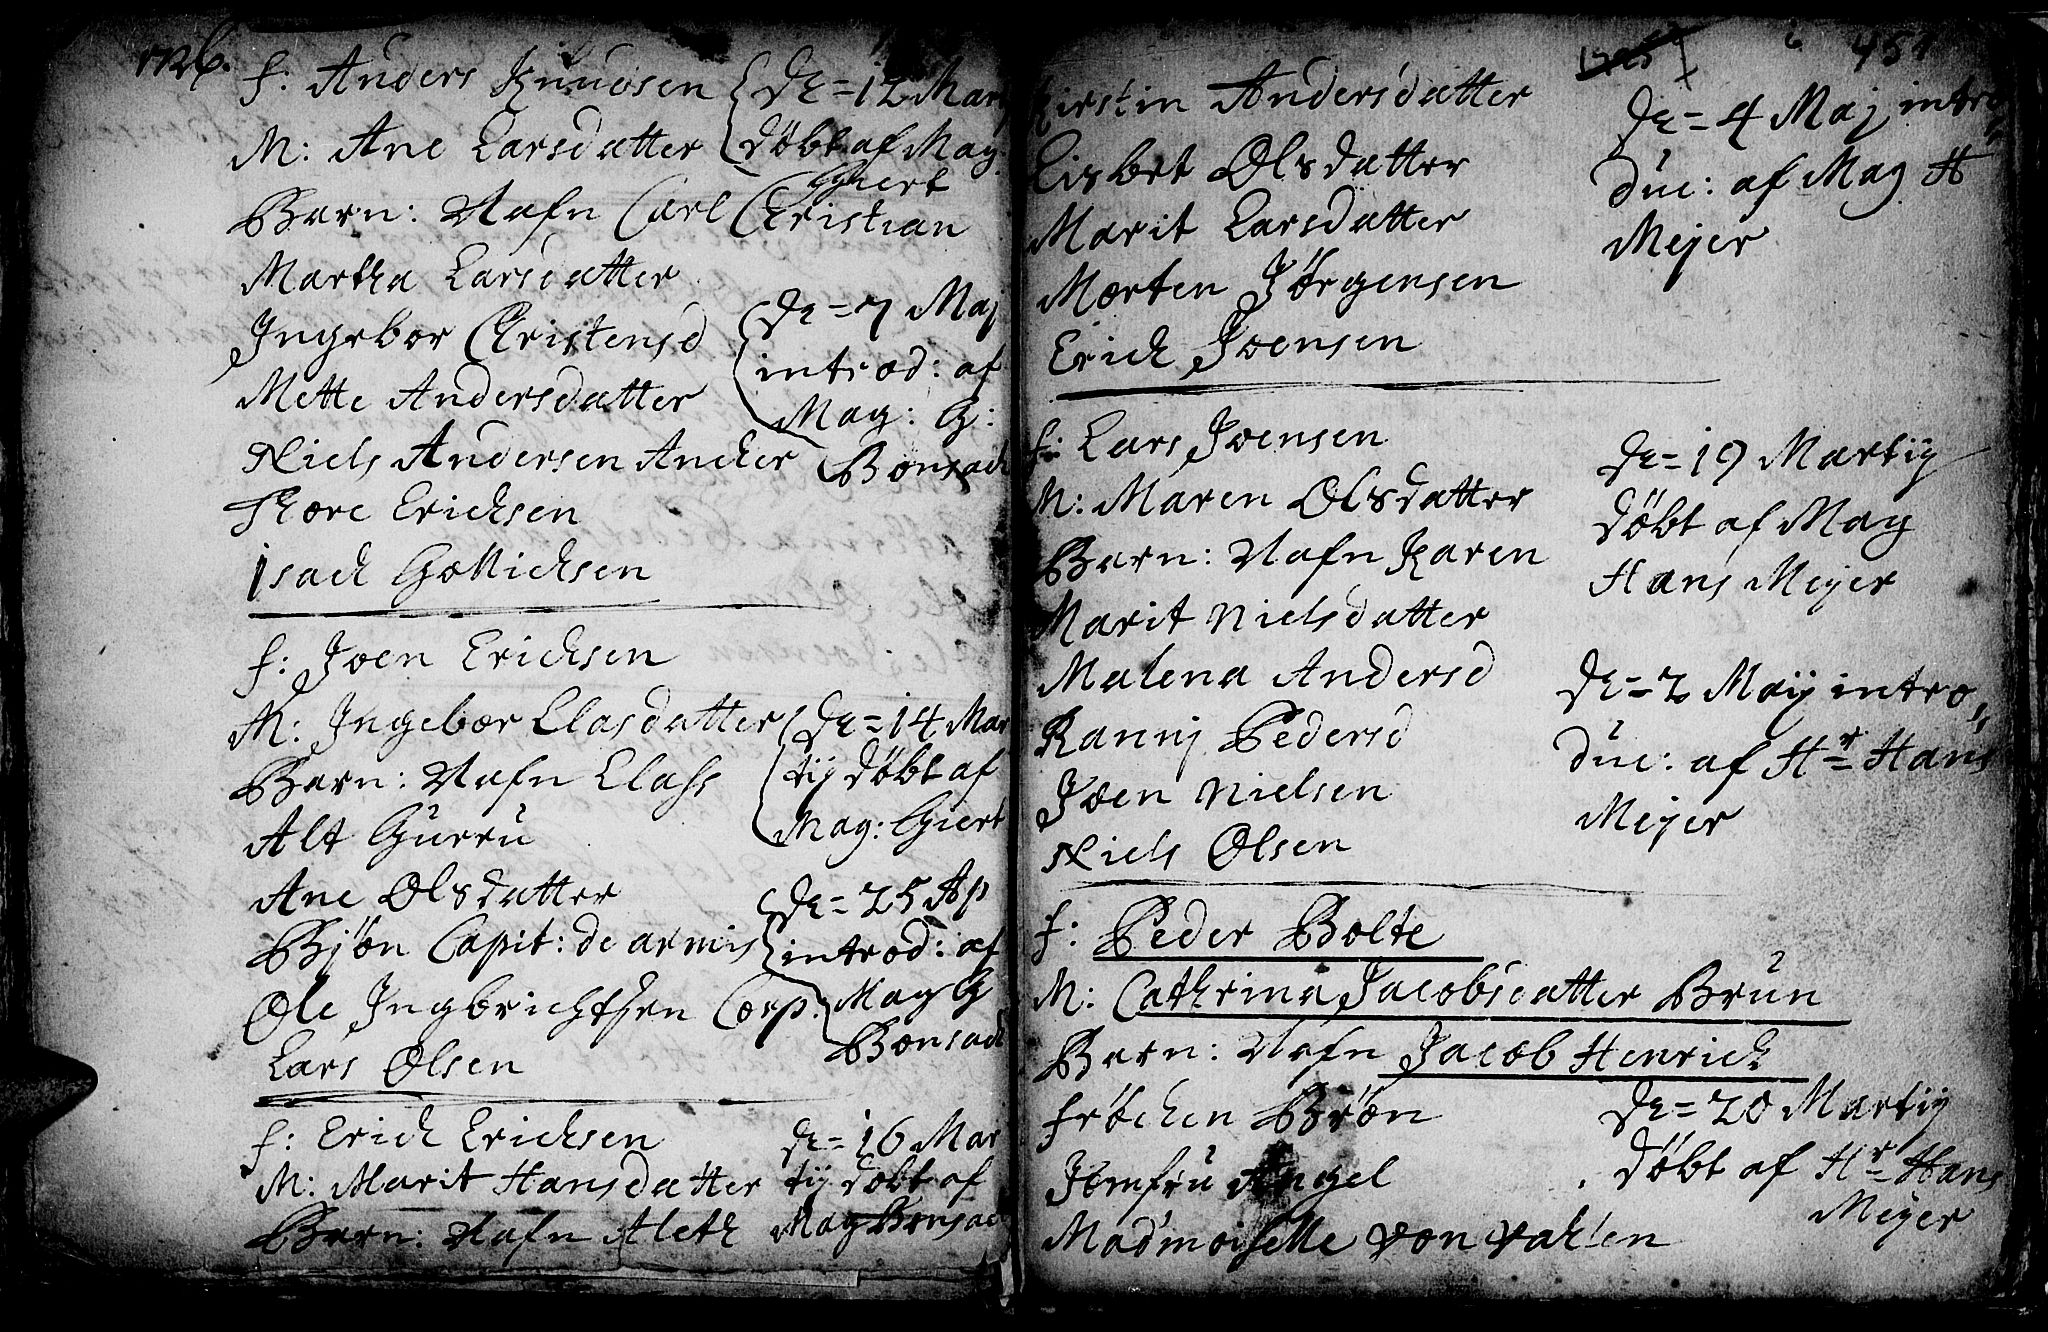 1726.
F: Anders Knudsen
M: Ane Larsdatter
De = 12 Mart
døbt af Mag:
Giert
Barn: Nafn Carl Christian
Martha Larsdatter
Ingebor Christensd
Mette Andersdatter
De = 7 Maj
introd: af
Mag: G:
Bonsach
Niels Andersen Ancker
Thore Ericksen
Isach Gottlichsen
F: Joen Ericksen
M: Ingebor Clasdatter
Barn: Nafn Class
Alt Gurru
De = 14 Mar
tij døbt af
Mag: Giert
Ane Olsdatter
Bjøn Capit: de armis
Ole Ingbrichtsen Corp:
Lars Olsen
De = 25 Ap
introd: af
Mag G
Bonsach
F: Erich Ericksen
M: Marit Hansdatter
Barn: Nafn Aleth
De = 16 Mar
tij døbt af
Mag Bonsach
6 451
Kirstin Andersdatter
Lisbet Olsdatter
Marit Larsdatter
Morten Jørgensen
Erich Joensen
De = 4 Maj intro
duc: af Mag H
Mejer
F: Lars Joensen
M: Maren Olsdatter
Barn: Nafn Karen
De = 19 Martij
døbt af Mag
Hans Mejer
Marit Nielsdatter
Malena Andersd
Ranny Pedersd
Joen Nielsen
Niels Olsen
De = 2 Maij intro,,
duc: af Hr = Hans
Mejer
F: Peder Bolte
M: Cathrina Jacobsdatter Brun
Barn: Nafn Jacob Henrich
Frøchen Brøn
Jomfru Angel
Madmoiselle von Vahlen
De = 20 Martij
døbt af Hr = Hans
Meyer